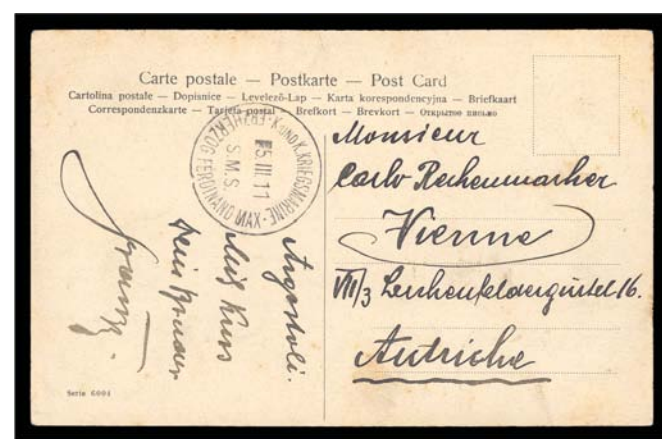 Carte postale — Postkarte — Post Card
Cartolina postale — Dopisnice — Levelező-Lap — Karta korespondencyjna — Briefkaart
Correspondenzkarte — Tarjeta postal — Brefkort — Brevkort — Открытое письмо
K. UND K. KRIEGSMARINE
5.III 11
S.M.S.
ERZHERZOG FERDINAND MAX
Monsieur
Carlo Rechenmacher
Vienne
VIII/3 Lerchenfeldergürtel 16.
Autriche
Argostoli.
Kuss
dein Bruder
Franz
Serie 6004